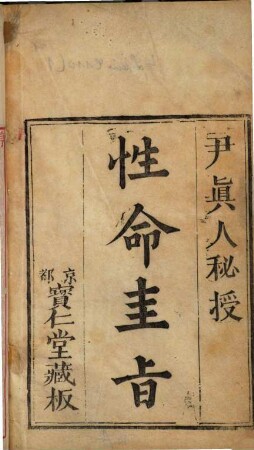 尹眞人秘授
性命圭旨
京都寶仁堂藏板